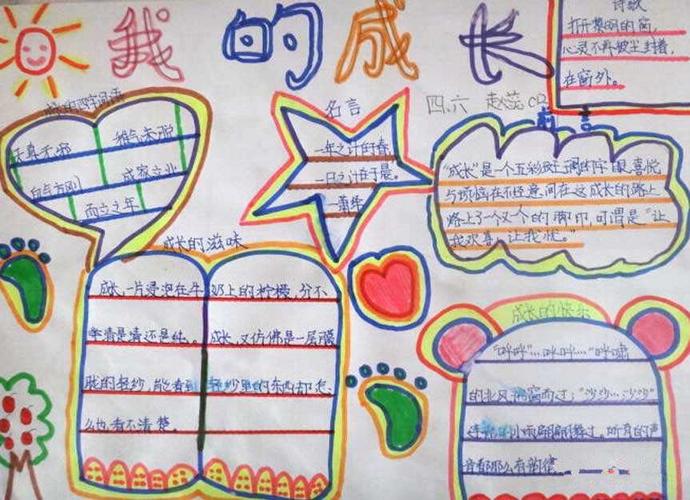 我的成长
诗歌
打开紧闭的窗,
心灵不再被尘封着,
在窗外。
四、六
成长的四字词语
天真无邪
稚气未脱
血气方刚
成家立业
而立之年
名言
一年之计在于春
一日之计在于晨。
前言
“成长”是一个五彩斑斓的字眼,喜悦
与烦恼在不经意间在这成长的路上
路上了一个又一个的脚印,可谓是“让
我欢喜,让我忧。”
成长的滋味
成长,一片浸泡在牛奶上的柠檬,分不
清是
还是纯。成长,又仿佛是一层朦
胧的轻纱,能看到轻纱里的东西却怎
么也看不清楚。
成长的快乐
“呼呼”…呼呼…“呼啸
的北风
而过;“沙沙…沙沙”